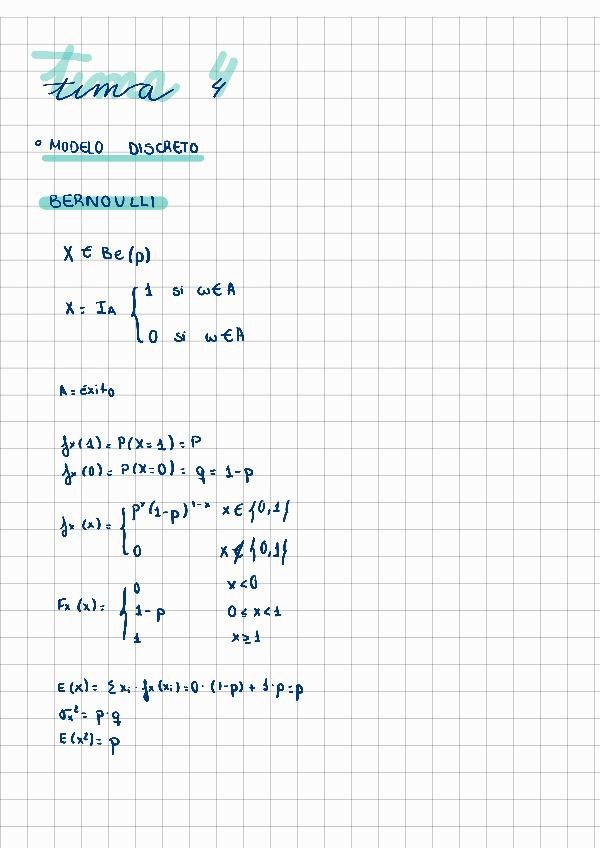 tema 4
° MODELO DISCRETO
BERNOULLI
X ∈ Be(p)
X = I_A { 1 si ω∈A
0 si ω∈A
A = éxito
f_x(1) = P(X=1) = P
f_x(0) = P(X=0) = q = 1-p
f_x(x) = { p^x(1-p)^{1-x} x ∈ {0,1}
0 x ∉ {0,1}
F_x(x) = { 0 x<0
1-p 0≤x<1
1 x≥1
E(x) = Σ x_i · f_x(x_i) = 0·(1-p) + 1·p = p
σ_x² = p·q
E(x²) = p